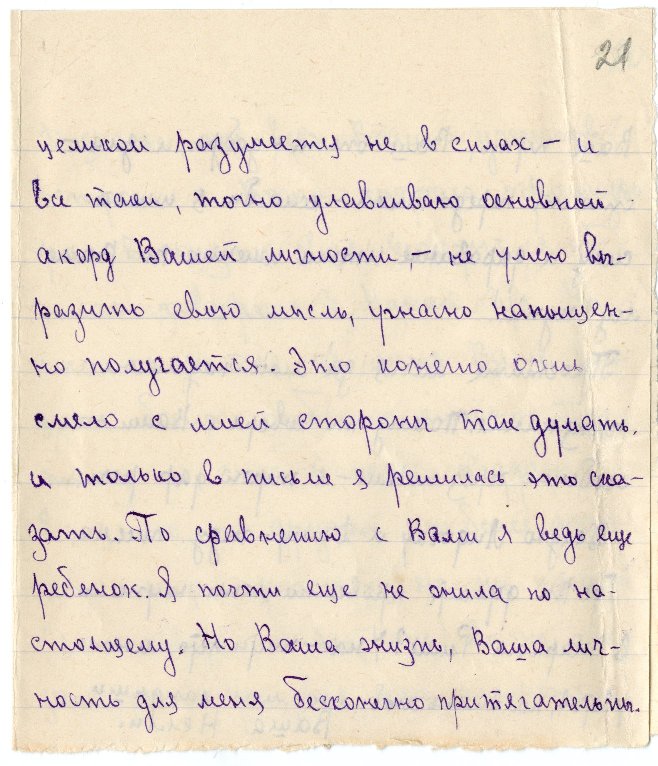 21
целиком разумеется не в силах – и
все таки, точно улавливаю основной
акорд Вашей личности, – не умею вы-
разить свою мысль, ужасно напыщен-
но получается. Это конечно очень
смело с моей стороны так думать,
и только в письме я решилась это ска-
зать. По сравнению с Вами я ведь еще
ребенок. Я почти еще не жила по на-
стоящему. Но Ваша жизнь, Ваша лич-
ность для меня бесконечно притягательны.